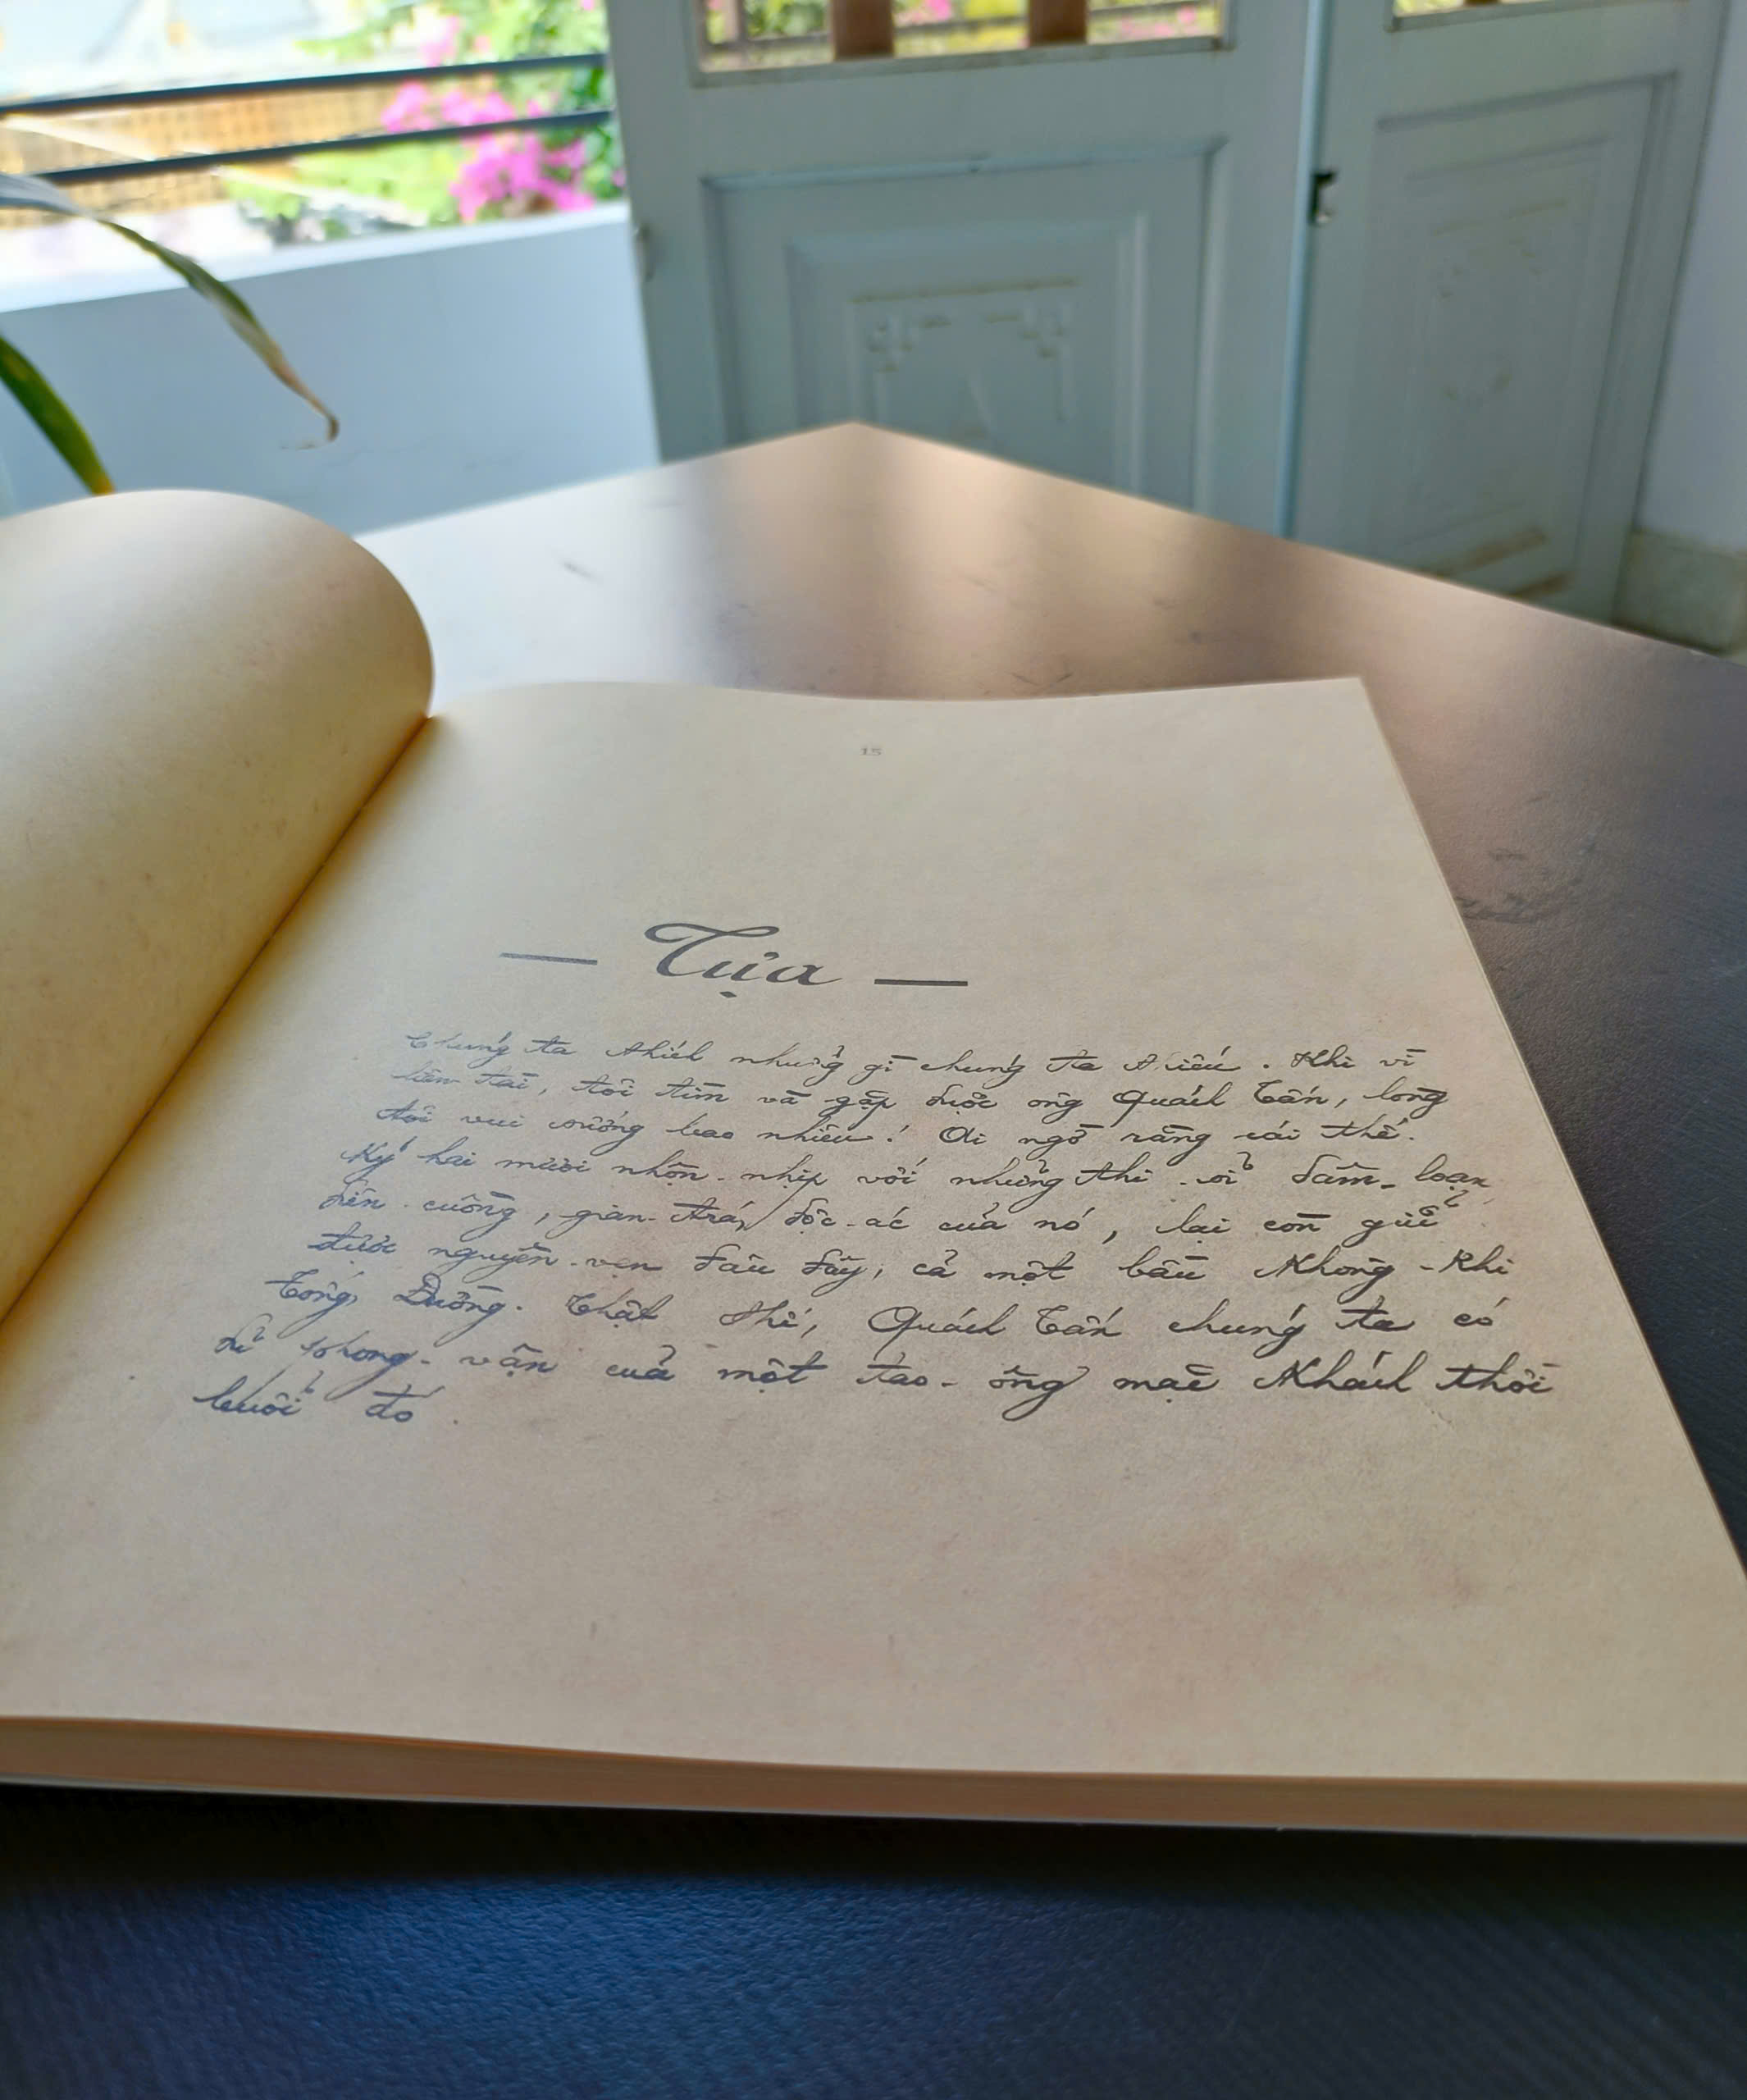 15
— Tựa —
Chúng ta thích những gì chúng ta thiếu. Khi vì
tôi tìm và gặp được ông Quách Tấn, lòng
tôi vui sướng bao nhiêu! Ai ngờ rằng cái thế-
kỷ hai mươi nhộn-nhịp với những thi-sĩ dâm-loạn
điên-cuồng, gian-trá, độc-ác của nó, lại còn giữ
được nguyên-vẹn đâu đây, cả một bầu không-khí
Tống Đường. Thật thế, Quách Tấn chúng ta có
đủ phong-vận của một tao-ông mặc khách thời
buổi đó.